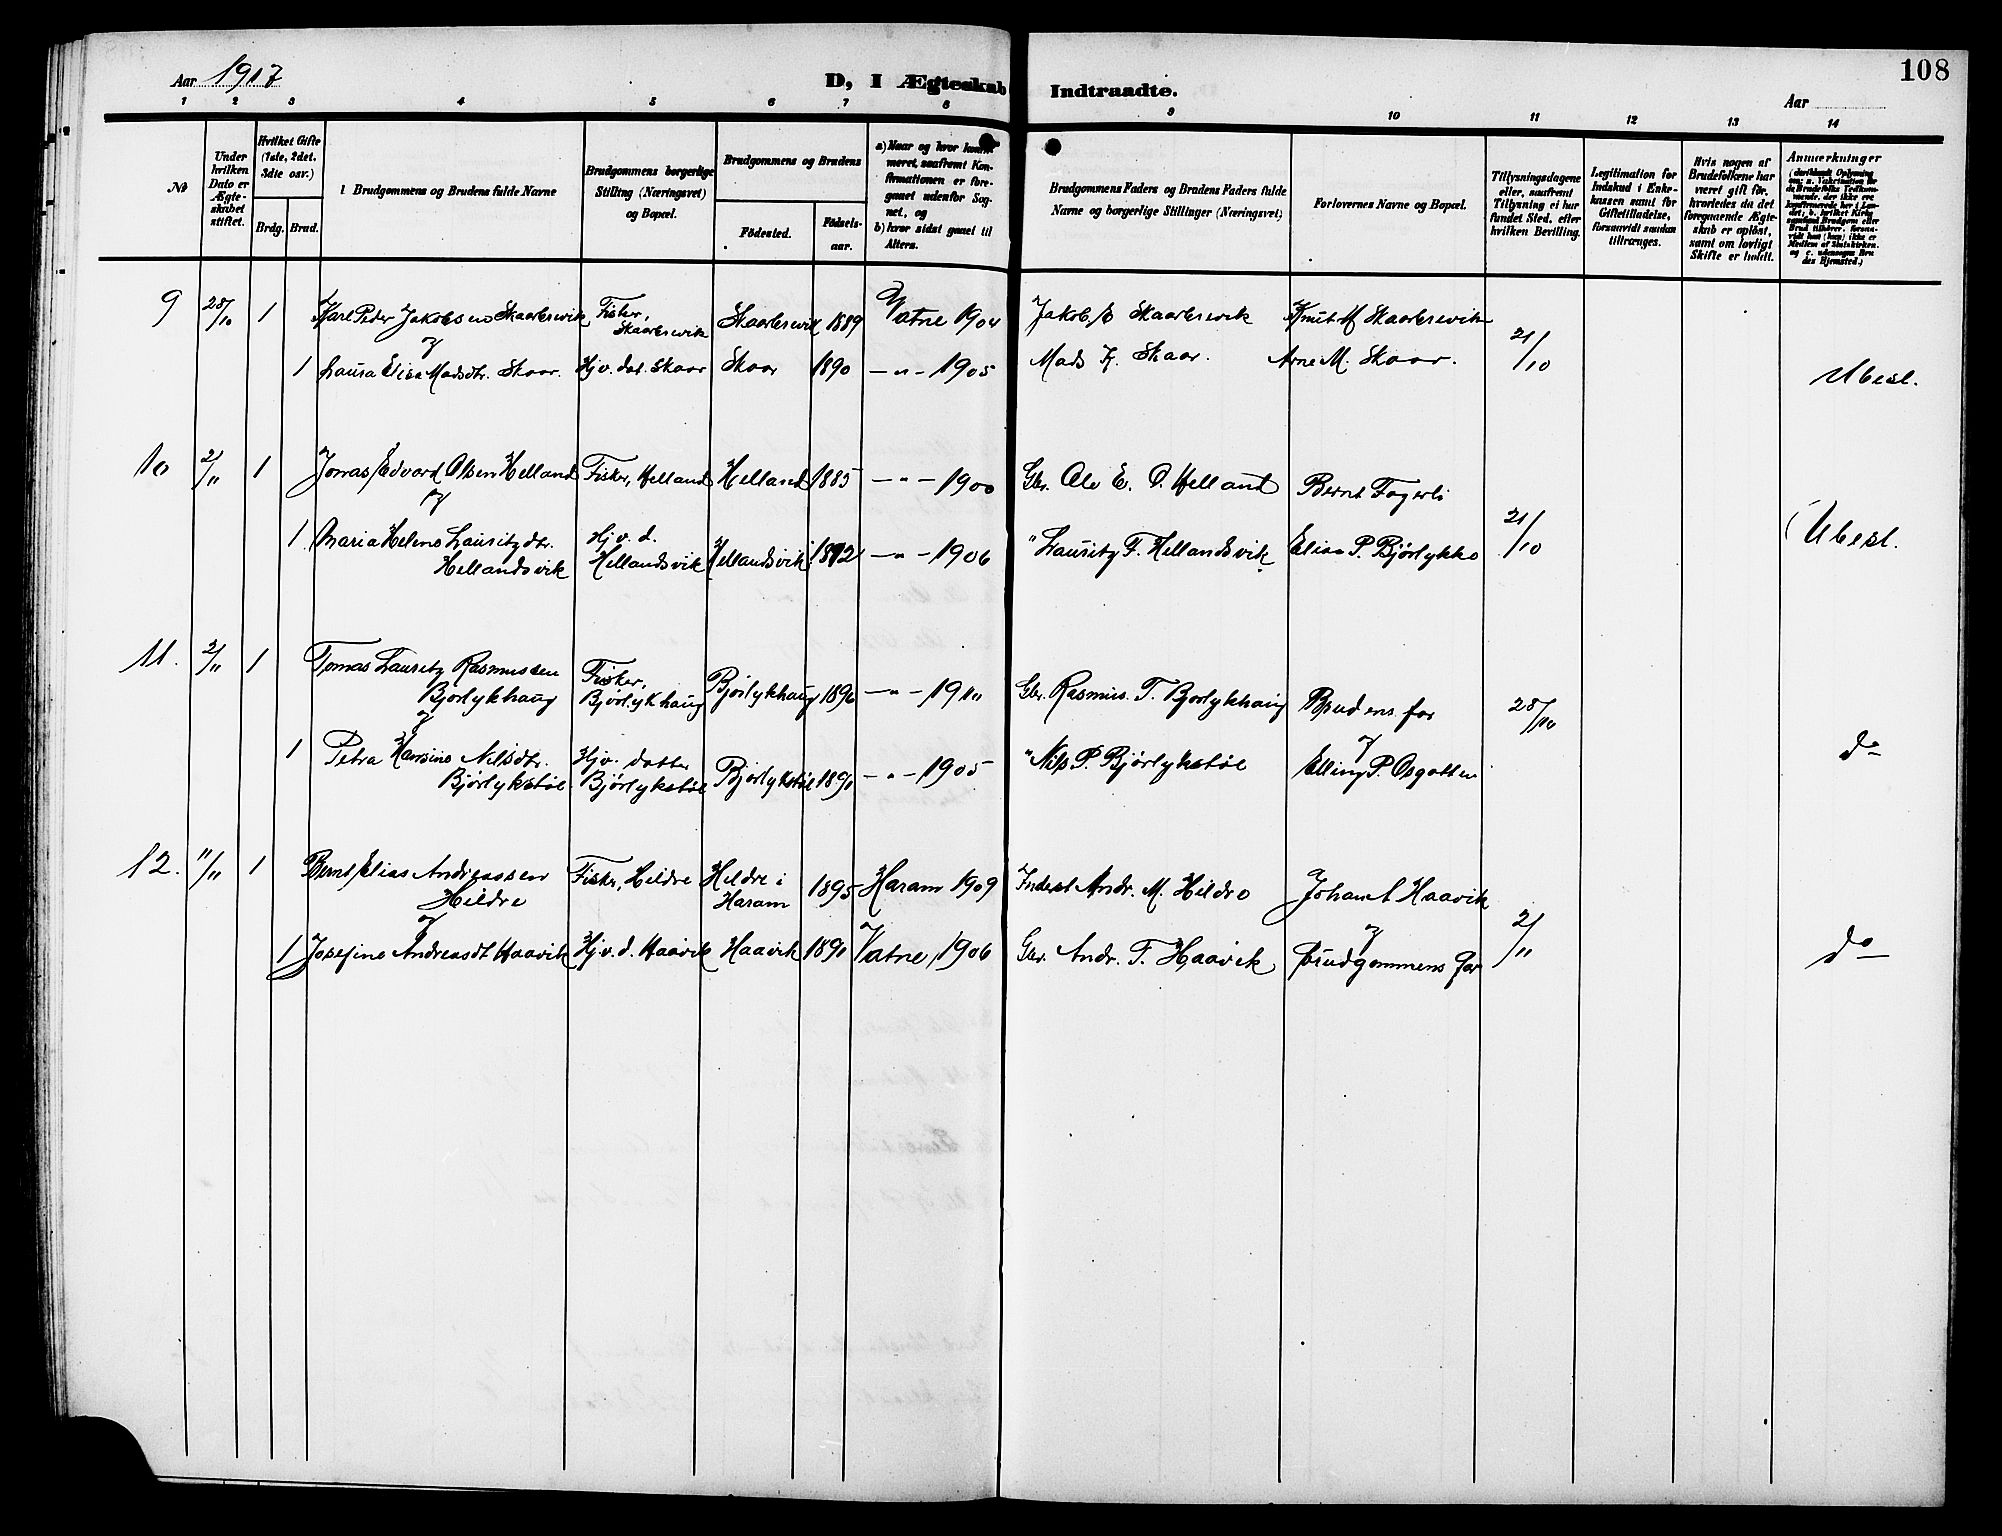 108
Aar 1917
D, I Ægteskab Indtraadte.
Aar
1 2 3 4 5 6 7 8 9 10 11 12 13 14
№
Under hvilken Dato er Ægteskabet stiftet.
Hvilket Gifte (1ste, 2det, 3die osv.)
Brdg. Brud.
Brudgommens og Brudens fulde Navne
Brudgommens borgerlige Stilling (Næringsvei) og Bopæl.
Brudgommens og Brudens
Födested.
Födselsaar.
a) Naar og hvor konfirmeret, saafremt Konfirmationen er foregaaet udenfor Sognet, og
b) hvor sidst gaaet til Alters.
Brudgommens Faders og Brudens Faders fulde Navne og borgerlige Stillinger (Næringsvei)
Forlovernes Navne og Bopæl.
Tillysningsdagene eller, saafremt Tillysning ei har fundet Sted, efter hvilken Bevilling.
Legitimation for Indskud i Enkekassen samt for Giftetilladelse, forsaavidt saadan tiltrænges.
Hvis nogen af Brudefolkene har været gift før, hvorledes da det foregaaende Ægteskab er oplöst, samt om lovligt Skifte er holdt.
Anmærkninger
9 28/10 1 Karl Peder Jakobsen Skaarbrevik Fisker, Skaarbrevik Skaarbrevik 1889 Vatne 1904 Jakob Skaarbrevik Knut M Skaarbrevik 21/10
og
1 Laura Elisa Madsdtr. Skaar. Hjv. dat. Skaar Skaar 1890 — " — 1905 Mads K. Skaar. Arne M. Skaar. Ubesl.
10 2/11 1 Jonas Edvard Olsen Helland Fisker, Helland Helland 1885 — " — 1900 Gbr. Ole E. O. Helland Bernt Fagerli 21/10
og
1. Maria Helene Lauritzdtr. Hellandsvik Hjv. d. Hellandsvik Hellandsvik 1892 — " — 1906 " Lauritz F. Hellandsvik Elias P. Bjørlykke Ubesl.
11. 2/11 1 Tomas Lauritz Rasmussen Bjørlykhaug Fisker, Bjørlykhaug Bjørlykhaug 1896 — " — 1910 Gbr. Rasmus T. Bjørlykhaug Brudens far 28/10
og
1 Petra Hansine Nilsdtr. Bjørlykstøl Hjv. datter Bjørlykstøl Bjørlykstøl 1890 — " — 1905 " Nils P. Bjørlykstøl og Elling P. Osgotten do
12. 11/11 1 Bernt Elias Andreassen Hildre Fisker, Hildre Hildre i Haram 1895 Haram 1909 Inderst Andr. M. Hildre Johan A Haavik 2/11
og
1 Josefine Andreasdt Haavik Hjv. d. Haavik Haavik 1890 Vatne, 1906 Gbr. Andr. T. Haavik og Brudgommens far do